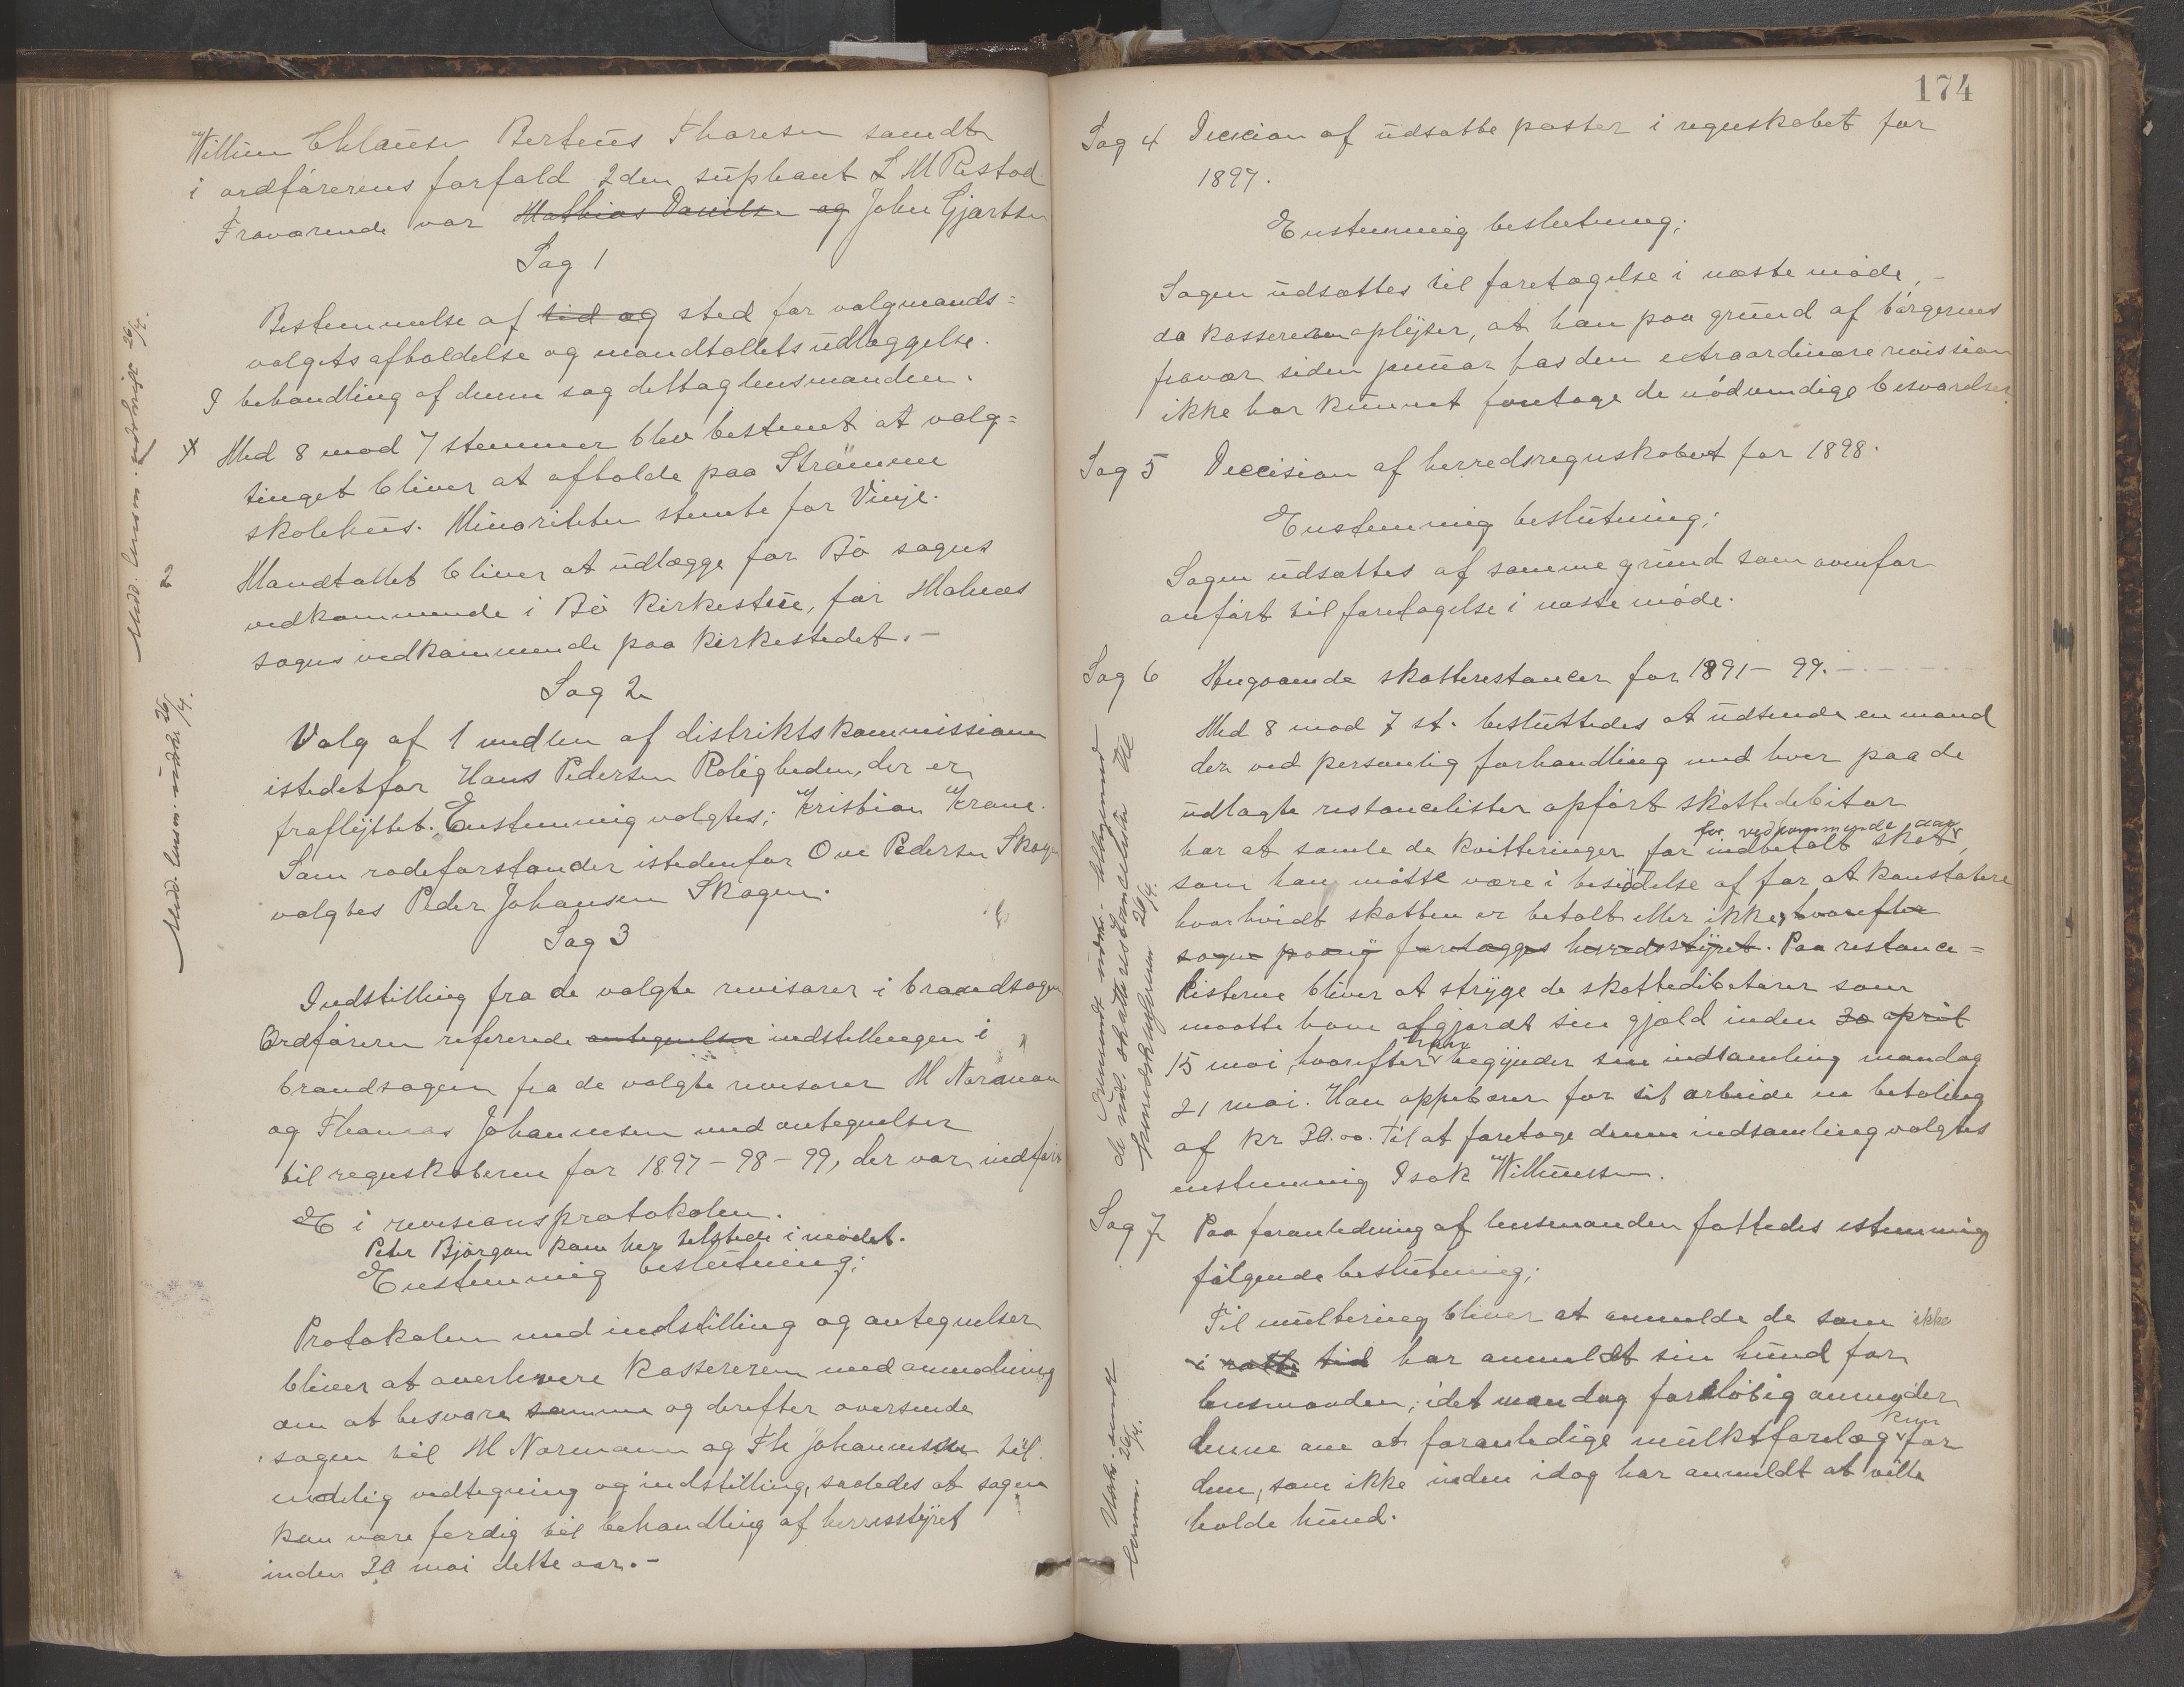 Willum Chlausen Berteus Thoresen samdt
i ordförerens forfald 2den supleant L M Ristad
Fraværende var Mathias Danielsen og John Gjærtsen
Sag 1
Bestemmelse af tid og sted for valgmands=
valgets afholdelse og mandtallets udlæggelse.
I behandling af denne sag deltog lensmanden.
Med 8 mod 7 stemmer blev bestemt at valg=
tinget bliver at afholde paa Straume
skolehus. Minoriteten stemte for Vinje.
Mandtallet bliver at udlægge for Bö sogns
vedkommende i Bö Kirkestue, for Malnæs
sogns vedkommende paa Kirkestedet.-
Medd. lensm. udskrift 26/4.
Sag 2
Valg af 1 medlem af distriktskommissionen
istedetfor Hans Pedersen Roligheden, der er
fraflyttet. Enstemmig valgtes: Kristian Krane.
Som rodeforstander istedenfor Ove Pedersen Skogen
valgtes Peder Johansen Skogen.
Medd. lensm. udskr. 26/4.
Sag 3
Indstilling fra de valgte revisorer i brandsagen
Ordföreren refererede antegnelsen indstillingen i
brandsagen fra de valgte revisorer M Normann
og Thomas Johannesen med antegnelser
til regnskaberne for 1897-98-99, der var indfört
i revisionsprotokolen.
Peter Björgan kom her tilstede i mödet.
Enstemmig beslutning:
Protokolen med indstilling og antegnelser
bliver at overlevere Kassereren med anmodning
om at besvare samme og derefter oversende
sagen til M Normann og Th Johannesen til
endelig vedtegning og indstilling, saaledes at sagen
kan være ferdig til behandling af herredsstyret
inden 20 mai dette aar.-
174
Sag 4 Decision af udsatte poster i regnskabet for
1897.
Enstemmig beslutning:
Sagen udsættes til foretagelse i næste möde,-
da kassereren oplyser, at han paa grund af bögernes
fravær siden januar hos den extraordinære revission
ikke har kunnet foretage de nödvendige besvarelser.
Sag 5 Deccision af herredsregnskabet for 1898.
Enstemmig beslutning:
Sagen udsættes af samme grund som ovenfor
anfört til foretagelse i næste möde.
Sag 6 Angaaende skatterestancer for 1891-99.
Med 8 mod 7 st. besluttedes at udsende en mand
der ved personlig forhandling med hver paa de
udlagte restancelister opfört skattedebitor
for vedkommende aar
har at samle de kvitteringer for indbetalt skat,
som han måtte være i besiddelse af for at konstatere
hvorhvidt skatten er betalt eller ikke, hvorefter
sagen paany forelægges herredsstyret. Paa restance=
listerne bliver at stryge de skattedebitorer som
maatte have afgjordt sin gjæld inden 30 april
han
15 mai, hvorefter begynder sin indsamling mandag
21 mai. Han oppebærer for sit arbeide en betaling
af kr 30.00. Til at foretage denne indsamling valgtes
enstemmig Isak Willumsen.
Sag 7 Paa foranledning af lensmanden fattedes enstemmig
fölgende beslutning:
Til multering bliver at anmelde de som ikke
i rette tid har anmeldt sin hund for
lensmanden; idet man dog forelöbig anmoder
kun
denne om at foranledige mulktforelæg for
dem, som ikke inden idag har anmeldt at ville
holde hund.
Udskr. sendt
lensm. 26/4.